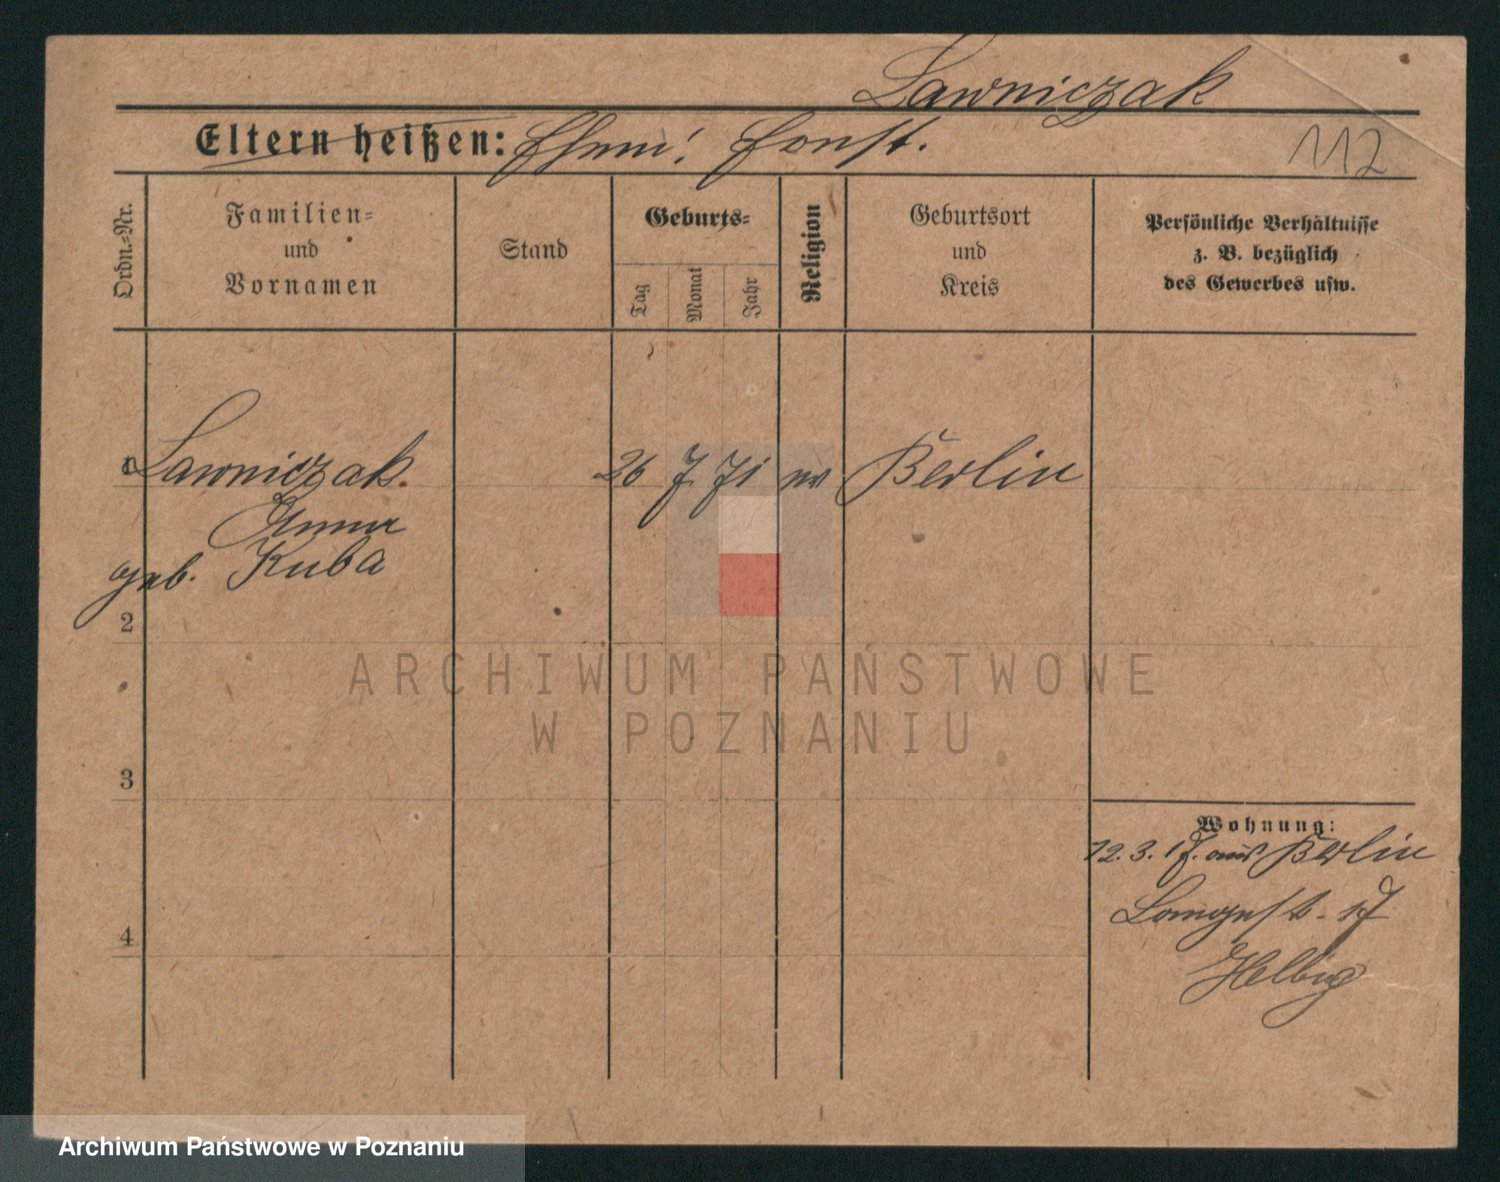 Lawniczak
Eltern heißen: Ehem: Const.
112
Ordn.=Nr.
Familien=
und
Vornamen
Stand
Geburts=
Tag
Monat
Jahr
Religion
Geburtsort
und
Kreis
Persönliche Verhältnisse
z. B. bezüglich
des Gewerbes usw.
1 Lawniczak. 26 7 71 ev Berlin
Anna
geb. Kuba
2
3
4
Wohnung:
12. 3. 17. aus Berlin
Langest. 17
Helbig
ARCHIWUM PAŃSTWOWE
W POZNANIU
Archiwum Państwowe w Poznaniu